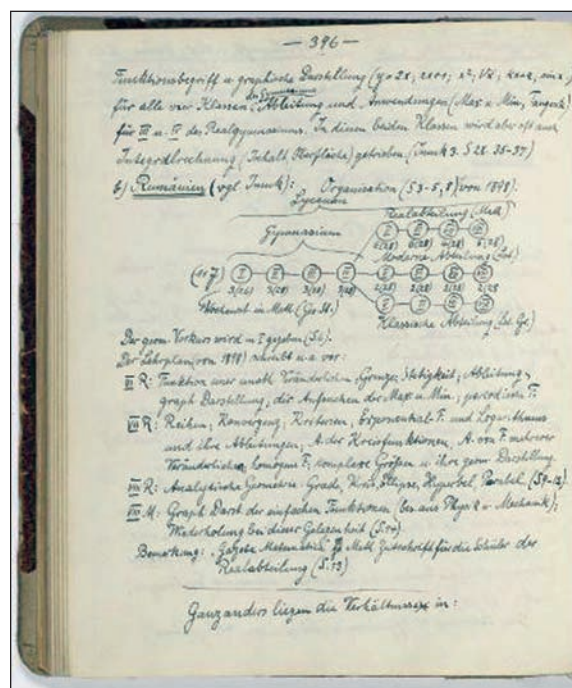 — 396 —
Funktionsbegriff u. graphische Darstellung (y = 2x, 2x+1, x², √x, sin x)
des Gymnasiums
für alle vier Klassen; Ableitung und Anwendungen (Max u. Min, Tangente)
für III u. IV des Realgymnasiums. In diesen beiden Klassen wird aber oft auch
Integralrechnung (Inhalt, Oberfläche) getrieben. 35-37)
b) Rumänien (vgl. ): Organisation (S 3-5, 8) von 1898:
Lyceum
Realabteilung (Math)
Gymnasium
Moderne Abteilung (Lat.)
(11-7) I II III IV
3(26) 3(28) 3(28) 3(28)
Wochenst. in Math. (Ges. St.)
Klassische Abteilung (Lat. Gr.)
Der geom. Vorkurs wird in I gegeben (S 6).
Der Lehrplan (von 1898) schreibt u. a. vor:
R: Funktion einer unabh. Veränderlichen, Grenze, Stetigkeit, Ableitung,
graph. Darstellung, die Aufsuchen der Max u. Min, periodische F.
VII R: Reihen, Konvergenz, Kriterien, Exponential-F. und Logarithmus
und ihre Ableitungen, A. der Kreisfunktionen, A. von F. mehrerer
Veränderlicher, homogene F., complexe Größen u. ihre geom. Darstellung.
VIII R: Analytische Geometrie: Grade, Kreis, Ellipse, Hyperbel, Parabel. (S 9-12).
M: Graph. Darst. der einfachen Funktionen (bes. aus Physik u. Mechanik);
Wiederholung bei dieser Gelegenheit (S. 10).
Bemerkung: „Gazeta Matematica" Math Zeitschrift für die Schüler der
Realabteilung (S. 13)
Ganz anders liegen die Verhältnisse in: